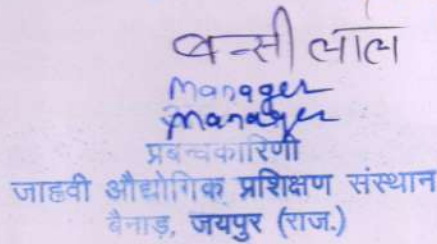 बन्सी लाल
Manager
Manager
प्रबन्धकारिणी
जाहवी औद्योगिक प्रशिक्षण संस्थान
बैनाड़, जयपुर (राज.)